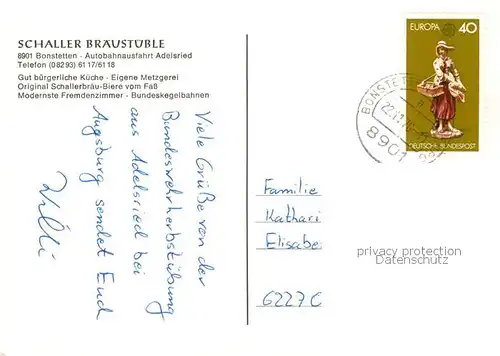 SCHALLER BRÄUSTÜBLE
8901 Bonstetten · Autobahnausfahrt Adelsried
Telefon (08293) 6117/6118
Gut bürgerliche Küche · Eigene Metzgerei
Original Schallerbräu-Biere vom Faß
Modernste Fremdenzimmer · Bundeskegelbahnen
Viele Grüße von der
Bundeswehrherbstübung
aus Adelsried bei
Augsburg sendet Euch
Willi
EUROPA 40
DEUTSCHE BUNDESPOST
BONSTETT
8901
Familie
Kathari
Elisabe
6227 O
privacy protection
Datenschutz